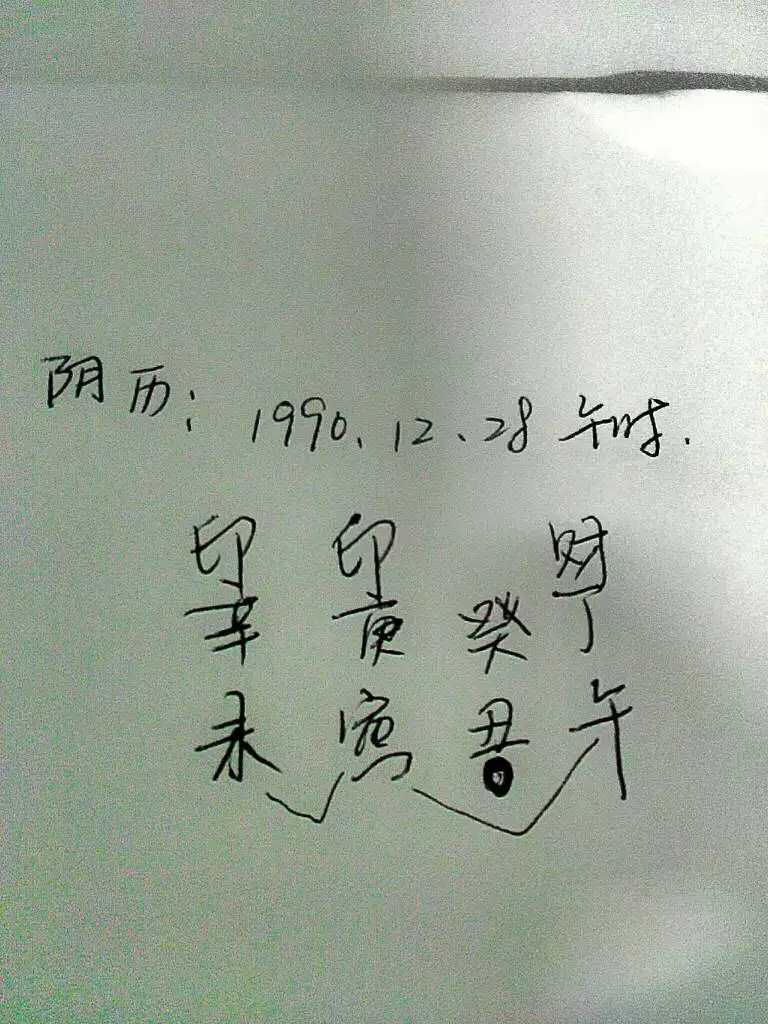 阴历：1990、12、28 午时.
印 印 财
辛 庚 癸 丁
未 寅 丑 午